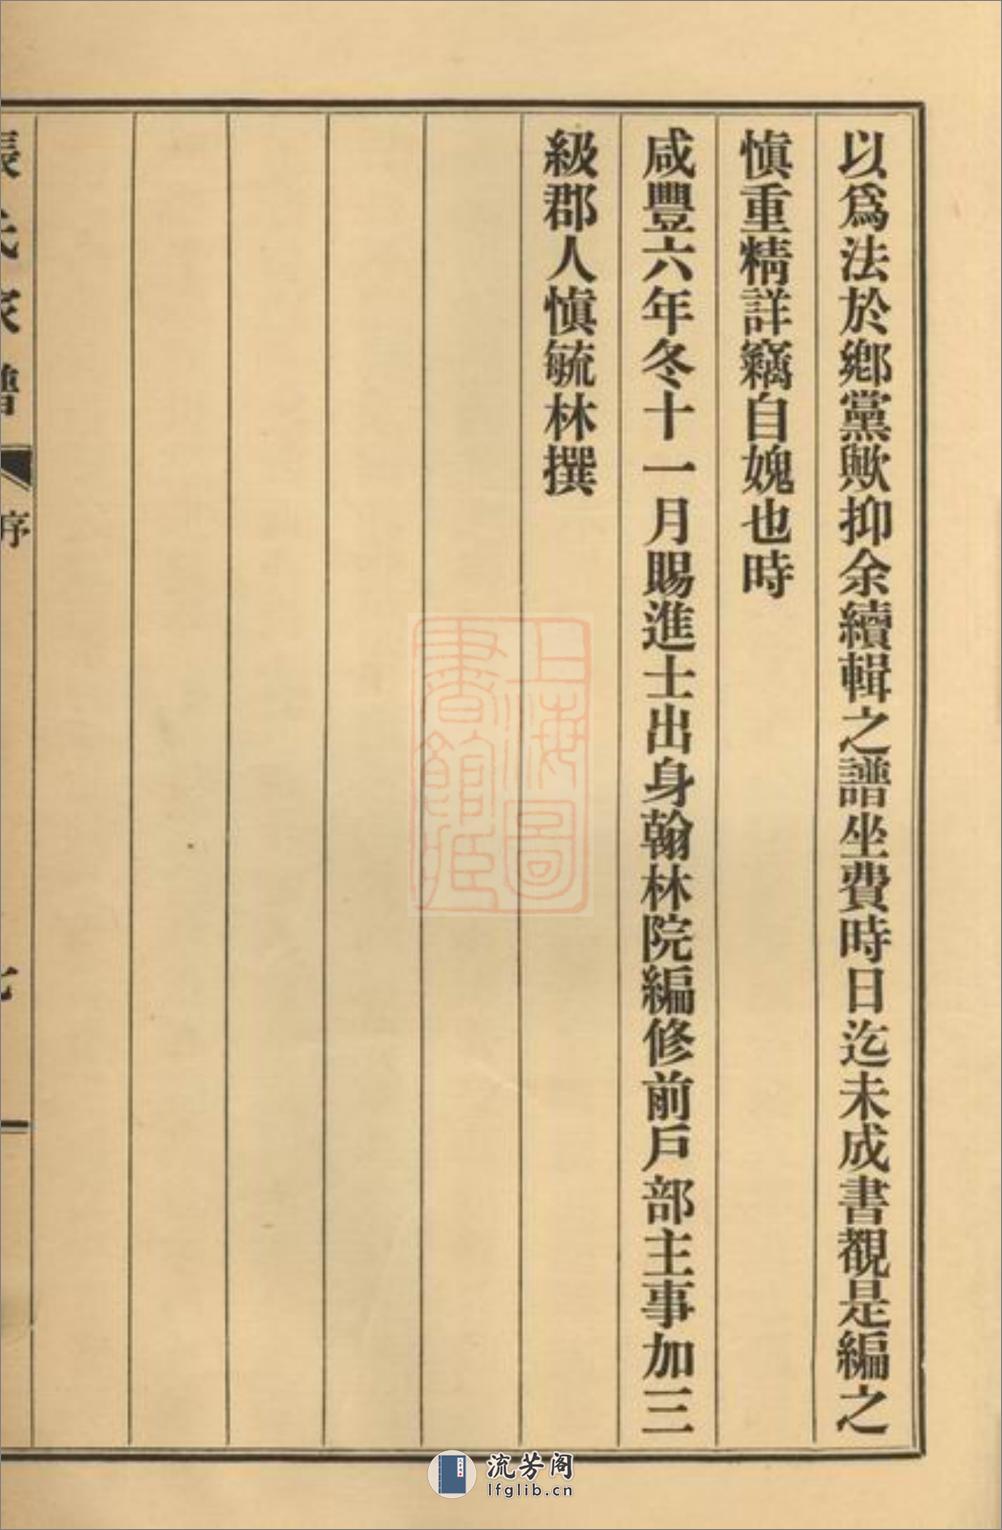 以爲法於鄕黨歟抑余續輯之譜坐費時日迄未成書覩是編之
愼重精詳竊自媿也時
咸豐六年冬十一月賜進士出身翰林院編修前戶部主事加三
級郡人愼毓林撰
張氏家譜
序
七
上海圖
書館藏
流芳阁
lfglib.cn